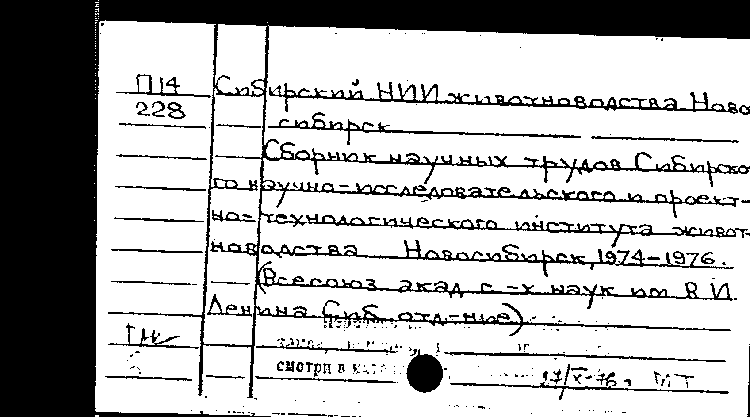 П14 Сибирский НИИ животноводства Ново
228 сибирск
Сборник научных трудов Сибирско
го научно=исследовательского и проект-
но=технологического института живот-
новодства Новосибирск, 1974-1976.
(Всесоюз акад с-х наук им В И
Ленина Сиб отд-ние)
смотри в
27/X-76 г МТ